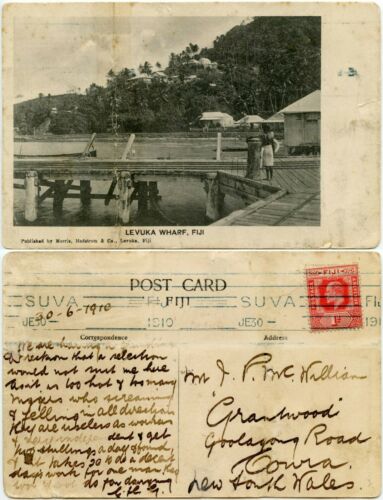 LEVUKA WHARF, FIJI
Published by Morris, Hedstrom & Co., Levuka, Fiji
POST CARD
FIJI
SUVA
JE30 1910
SUVA
JE30 1910
30-6-1910
FIJI
Correspondence
Address
We are having a
direction that a selection
would not suit me here
as it is too hot & too many
niggers who screaming
& yelling in all direction
they are useless as workers
& get
two shillings a day & found
it takes 20 to do a decent
days work for one man
do for
Mr J. P. McWillian
Grantwood
Goolagong Road
Cowra
New South Wales.